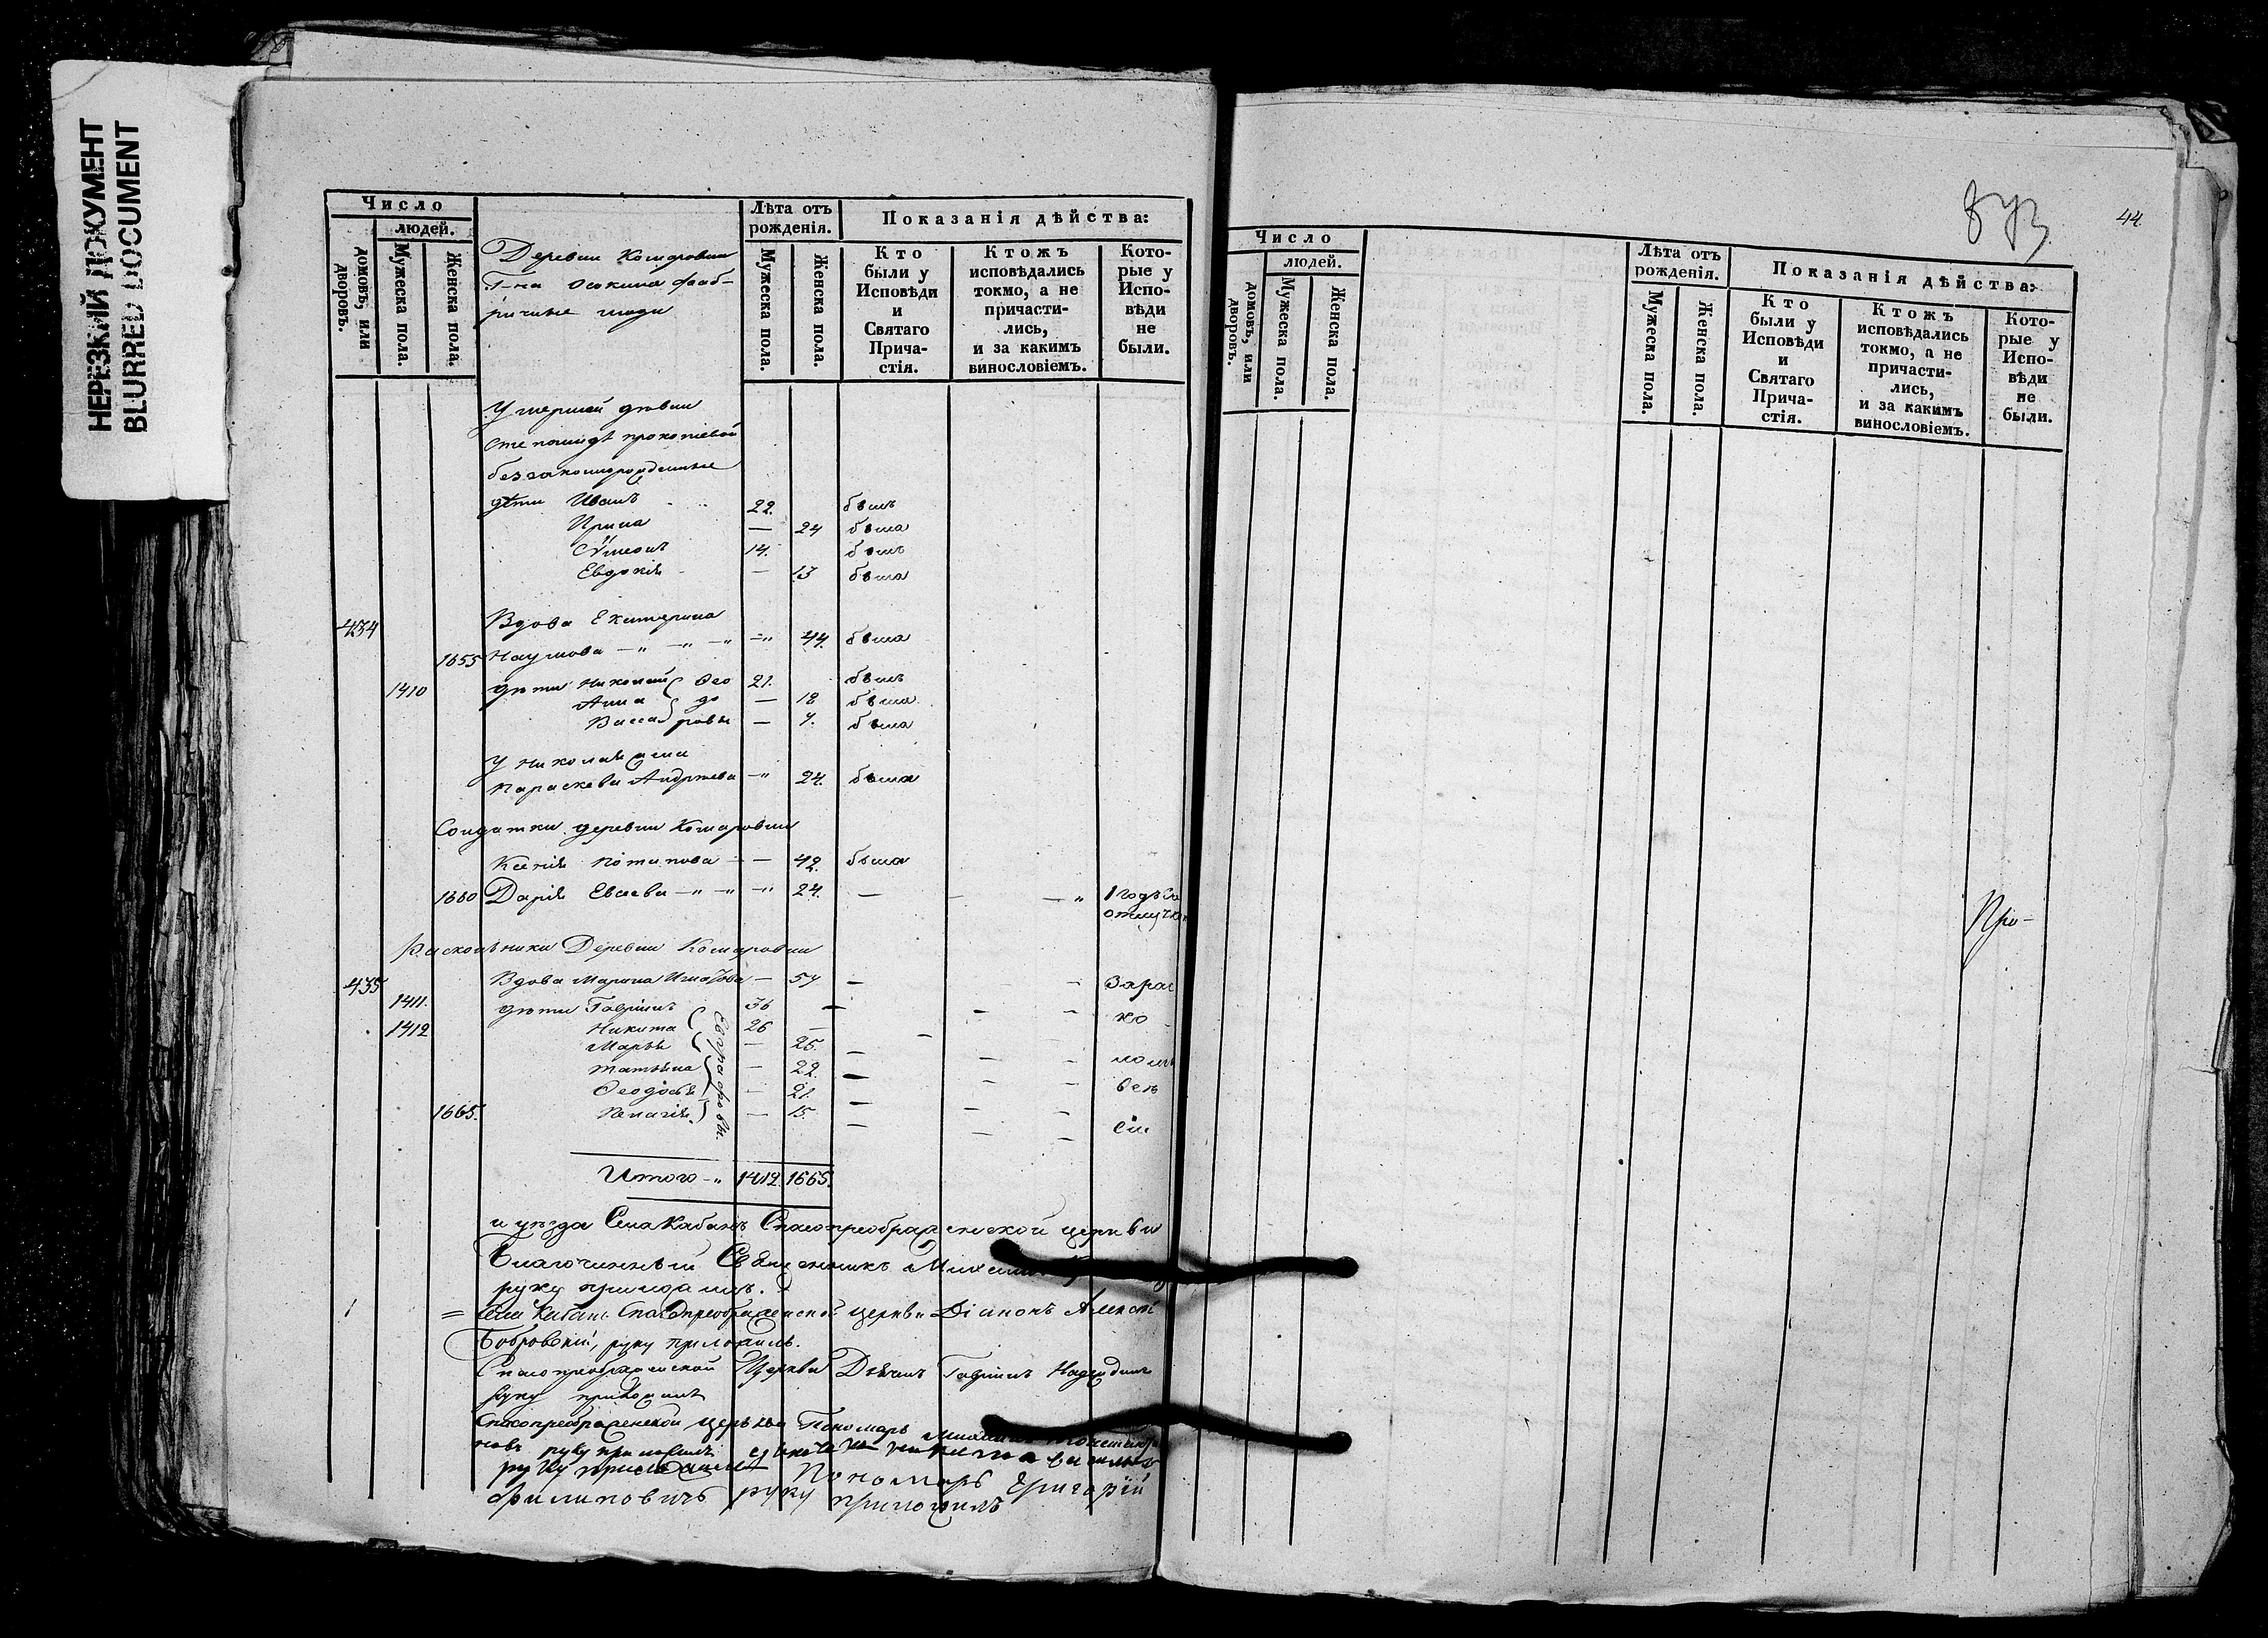 НЕРЕЗКИЙ ДОКУМЕНТ
BLURRED DOCUMENT
Число
людей.
домовъ, или дворовъ.
Мужеска пола.
Женска пола.
Деревни Комаровки
Г-на Осокина фаб-
ричные люди
Лѣта отъ рожденія.
Мужеска пола.
Женска пола.
Показанія дѣйства:
Кто были у Исповѣди и Святаго Прича-стія.
Ктожъ исповѣдались токмо, а не причасти-лись, и за какимъ винословіемъ.
Кото-рые у Испо-вѣди не были.
Умершей дѣвки
Степаниды Прокопіевой
беззаконнорожденные
дѣти Иванъ 22. былъ
Ирина — 24 была
Сѵмеонъ 14. былъ
Евдокія — 13 была
434 Вдова Екатерина
1655 Наумова — 44. была
1410 дѣти Николай Ѳео 21. былъ
Анна до — 18 была
Васса ровы — 7. была
У Николая жена
Параскева Андреева — 24. была
Солдатки деревни Комаровки
Ксенія Потапова — 42. была
1660 Дарія Евсева — 24. — 1 годъ за
отлучкою
Раскольники Деревни Комаровки
435 Вдова Марина — 57 — Зарас
1411. дѣти Гавріилъ 36 — ко
1412 Никита 26 —
Марья — 25. —
Татьяна — 22. —
Ѳеодосья — 21. —
1665. Пелагія — 15. —
Евграфовы.
Итого 1412. 1665.
и уѣзда Села Кабанъ Спасопреображенской церкви
Благочинный Священникъ Михаилъ
руку приложилъ.
Села Кабанъ Спасопреображенской церкви Діаконъ Алексѣй
Бобровскій, руку приложилъ.
Спасопреображенской Церкви Дьячекъ Гавріилъ
руку приложилъ
Спасопреображенской церкви Пономарь Михаилъ
руку приложилъ
руку приложилъ Пономарь Григорій
Филиповичъ руку приложилъ
873
44
Число
людей.
домовъ, или дворовъ.
Мужеска пола.
Женска пола.
Лѣта отъ рожденія.
Мужеска пола.
Женска пола.
Показанія дѣйства:
Кто были у Исповѣди и Святаго Прича-стія.
Ктожъ исповѣдались токмо, а не причасти-лись, и за какимъ винословіемъ.
Кото-рые у Испо-вѣди не были.
Про-